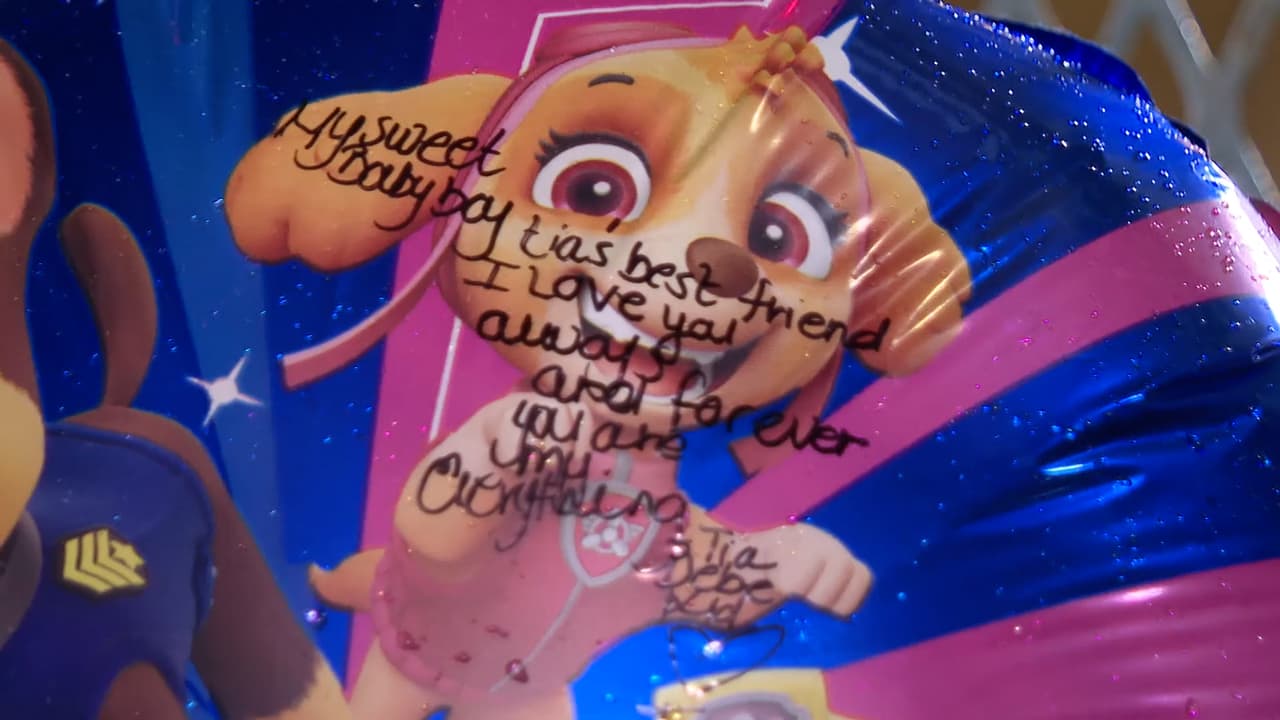 My sweet
Baby boy tia's best friend
I Love you
always
and forever
you are
my
Everything
Tia
Bebe